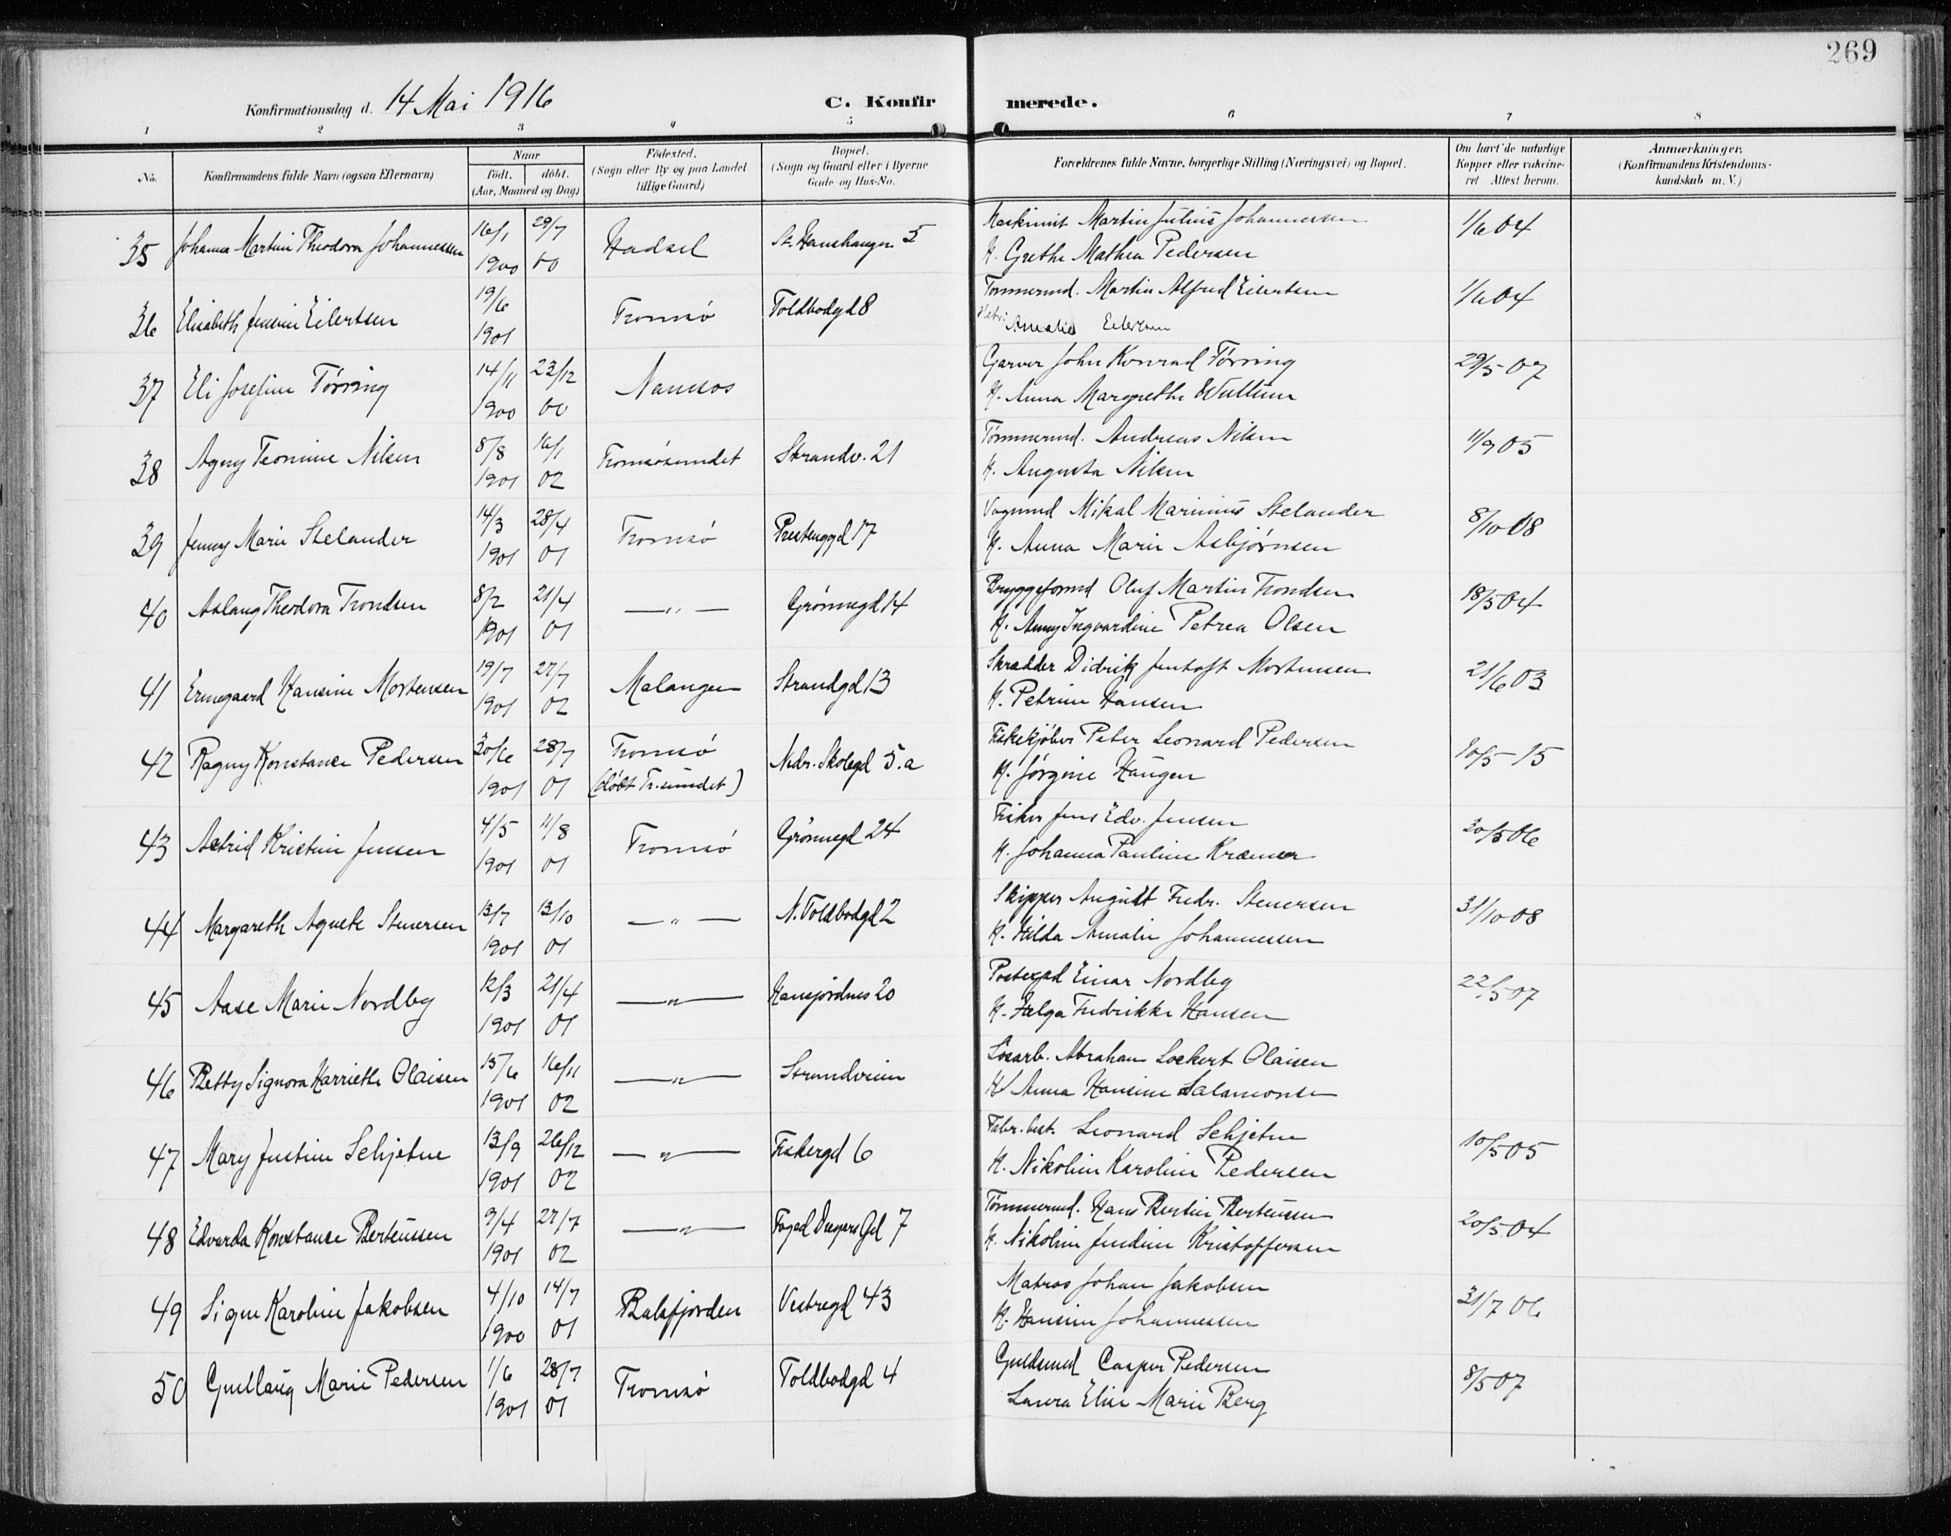 269
Konfirmationsdag d. 14 Mai 1916 C. Konfirmerede.
1 2 3 4 5 6 7 8
No. Konfirmandens fulde Navn (ogsaa Efternavn) Naar født. døbt. (Aar, Maaned og Dag) Fødested. (Sogn eller By og paa Landet tillige Gaard) Bopæl. (Sogn og Gaard eller i Byerne Gade og Hus-No. Forældrenes fulde Navne, borgerlige Stilling (Næringsvei) og Bopæl. Om havt de naturlige Kopper eller vaksineret Attest herom. Anmærkninger. (Konfirmandens Kristendomskundskab m. V.)
35 Johanna Martine Theodora Johannessen 16/1 29/7 Hadsel St. Hanshaugen 5 Maskinist Martin Julius Johannessen 1/6 04
1900 00 H. Grethe Mathea Pedersen
36 Elisabeth Jensine Eilertsen 19/6 Tromsø Toldbodgd 8 Tømmermd. Martin Alfred Eilertsen 1/6 04
1901 Amalie Eilertsen
37 Eli Josefine Tørring 14/11 23/12 Namsos Garver John Konrad Tørring 29/5 07
1900 00 H. Anna Margrethe Wullum
38 Agny Leonine Nilsen 8/8 16/1 Tromsøsundet Strandv. 21 Tømmermd. Andreas Nilsen 11/9 05
1901 02 H. Augusta Nilsen
39 Jenny Marie Stelander 14/3 28/4 Tromsø Prestenggd 17 Vognmd Mikal Marinius Stelander 8/10 08
1901 01 H. Anna Marie Asbjørnsen
40 Aslaug Theodora Trondsen 8/2 21/4 — " — Grønnegd 14 Bryggeformd Oluf Martin Trondsen 18/5 04
1901 01 H. Anny Ingvardine Petrea Olsen
41 Ermegaard Hansine Mortensen 19/7 27/7 Malangen Strandgd 13 Skrædder Didrik Jentoft Mortensen 21/6 03
1901 02 H. Petrine Hansen
42 Ragny Konstance Pedersen 30/6 28/7 Tromsø Nedr. Skolegd 5.a Fiskekjøber Peter Leonard Pedersen 10/5 - 15
1901 01 (døbt Tr.sundet) H. Jørgine Haugen
43 Astrid Kristine Jensen 4/5 11/8 Tromsø Grønnegd 24 Fisker Jens Edv. Jensen 30/5 06
1901 01 H. Johanna Pauline Kræmer
44 Margareth Agnete Stenersen 13/7 13/10 — " — N. Toldbodgd 2 Skipper August Fredr. Stenersen 31/10 08
1901 01 H. Hilda Amalie Johannessen
45 Aase Marie Nordby 12/3 21/4 — " — Hansjordnes 20 Postexpd Einar Nordby 22/5 07
1901 01 H. Helga Fredrikke Hansen
46 Betty Signora Harriethe Olaisen 15/6 16/11 — " — Strandveien Løsarb. Abraham Lockert Olaisen
1901 02 H. Anna Hansine Salamonsen
47 Mary Justine Schjetne 13/9 26/12 — " — Fiskergd 6 Leonard Schjetne 10/5 05
1901 02 H. Nikoline Karoline Pedersen
48 Edvarda Konstanse Berteussen 9/4 27/7 — " — Foged Dreyers Gd 7 Tømmermd. Hans Bertin Berteussen 20/5 04
1901 02 H. Nikoline Jendine Kristoffersen
49 Signe Karoline Jakobsen 4/10 14/7 Balsfjorden Vestregd 43 Matros Johan Jakobsen 31/7 06
1900 01 H. Hansine Johannessen
50 Gudlaug Marie Pedersen 1/6 28/7 Tromsø Toldbodgd 4 Guldsmed Casper Pedersen 8/5 07
1901 01 Laura Eline Marie Berg